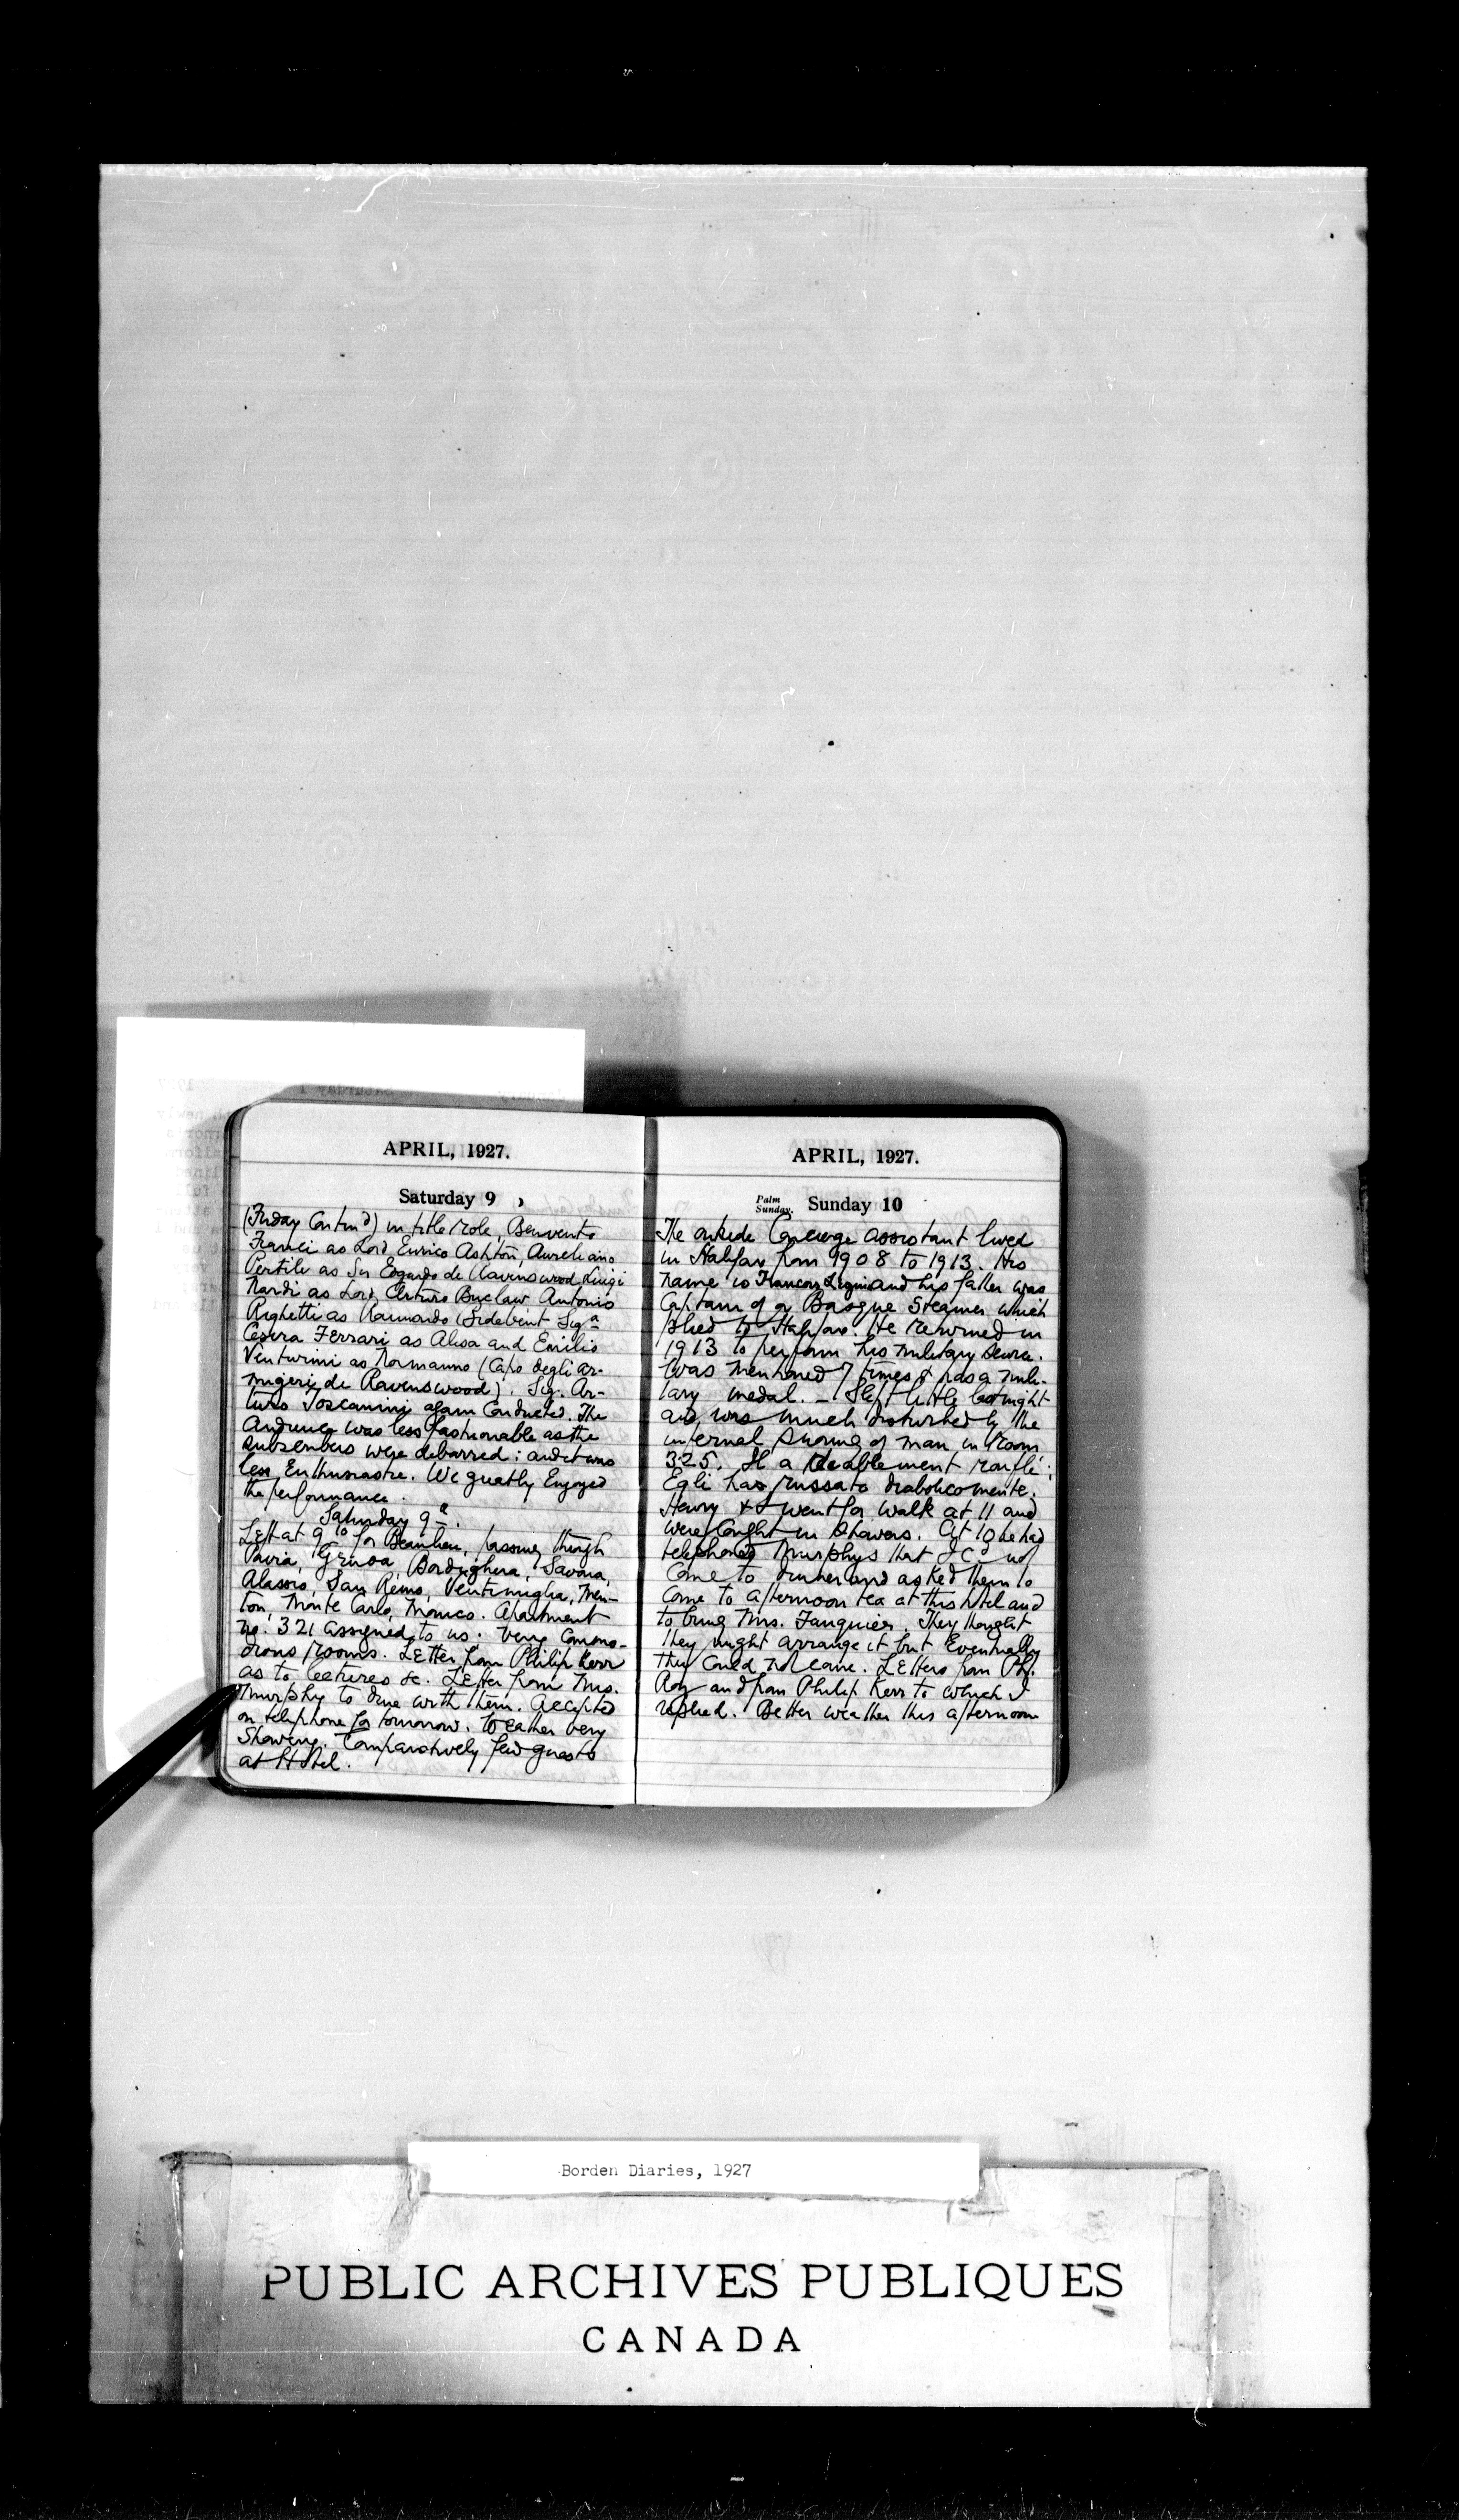 APRIL, 1927.
Saturday 9
(Friday Contind) in title role, Benvenuto
Franci as Lord Enrico Ashton, Aureliano
Pertile as Sir Edgardo de Ravenswood, Luigi
Nardi as Lord Arturo Buclaw Antonio
Righetti as Raimondo Bidebent Sigª
Cesira Ferrari as Alisa and Emilio
Venturini as Normanno (Capo degli ar-
migeri de Ravenswood). Sig. Ar-
turo Toscanini again Conducted. The
Audience was less fashionable as the
subscribers were debarred; and it was
less Enthusiastic. We greatly Enjoyed
the performance.
Saturday 9th.
Left at 9 10 for Beaulieu, passing through
Pavia, Genoa, Bordighera, Savona,
Alassio, San Remo, Ventimiglia, Men-
ton, Monte Carlo, Monaco. Apartment
no. 321 assigned to us. Very Commo-
dious rooms. Letter from Philip Kerr
as to lectures &c. Letter from Mrs.
Murphy to dine with them. Accepted
on telephone for tomorrow. Weather very
Showery. Comparatively few guests
at Hotel.
APRIL, 1927.
Palm
Sunday. Sunday 10
The outside Concierge assistant lived
in Halifax from 1908 to 1913. His
name is Francois and his father was
Captain of a Basque Steamer which
plied to Halifax. He returned in
1913 to perform his military service.
Was mentioned 7 times & has a mili-
tary medal. – Slept little last night
and was much disturbed by the
infernal snoring of man in room
325. Il a diablement ronflé;
Egli has russato diabolicomente.
Henry & I went for walk at 11 and
were Caught in Showers. At 10 he had
telephoned Murphys that I cd not
Come to dinner and asked them to
Come to afternoon tea at this hotel and
to bring Mrs. Fauquier. They thought
they might arrange it but Eventually
they Could not Come. Letters from Ph.
Roy and from Philip Kerr to which I
replied. Better weather this afternoon
Borden Diaries, 1927
PUBLIC ARCHIVES PUBLIQUES
CANADA